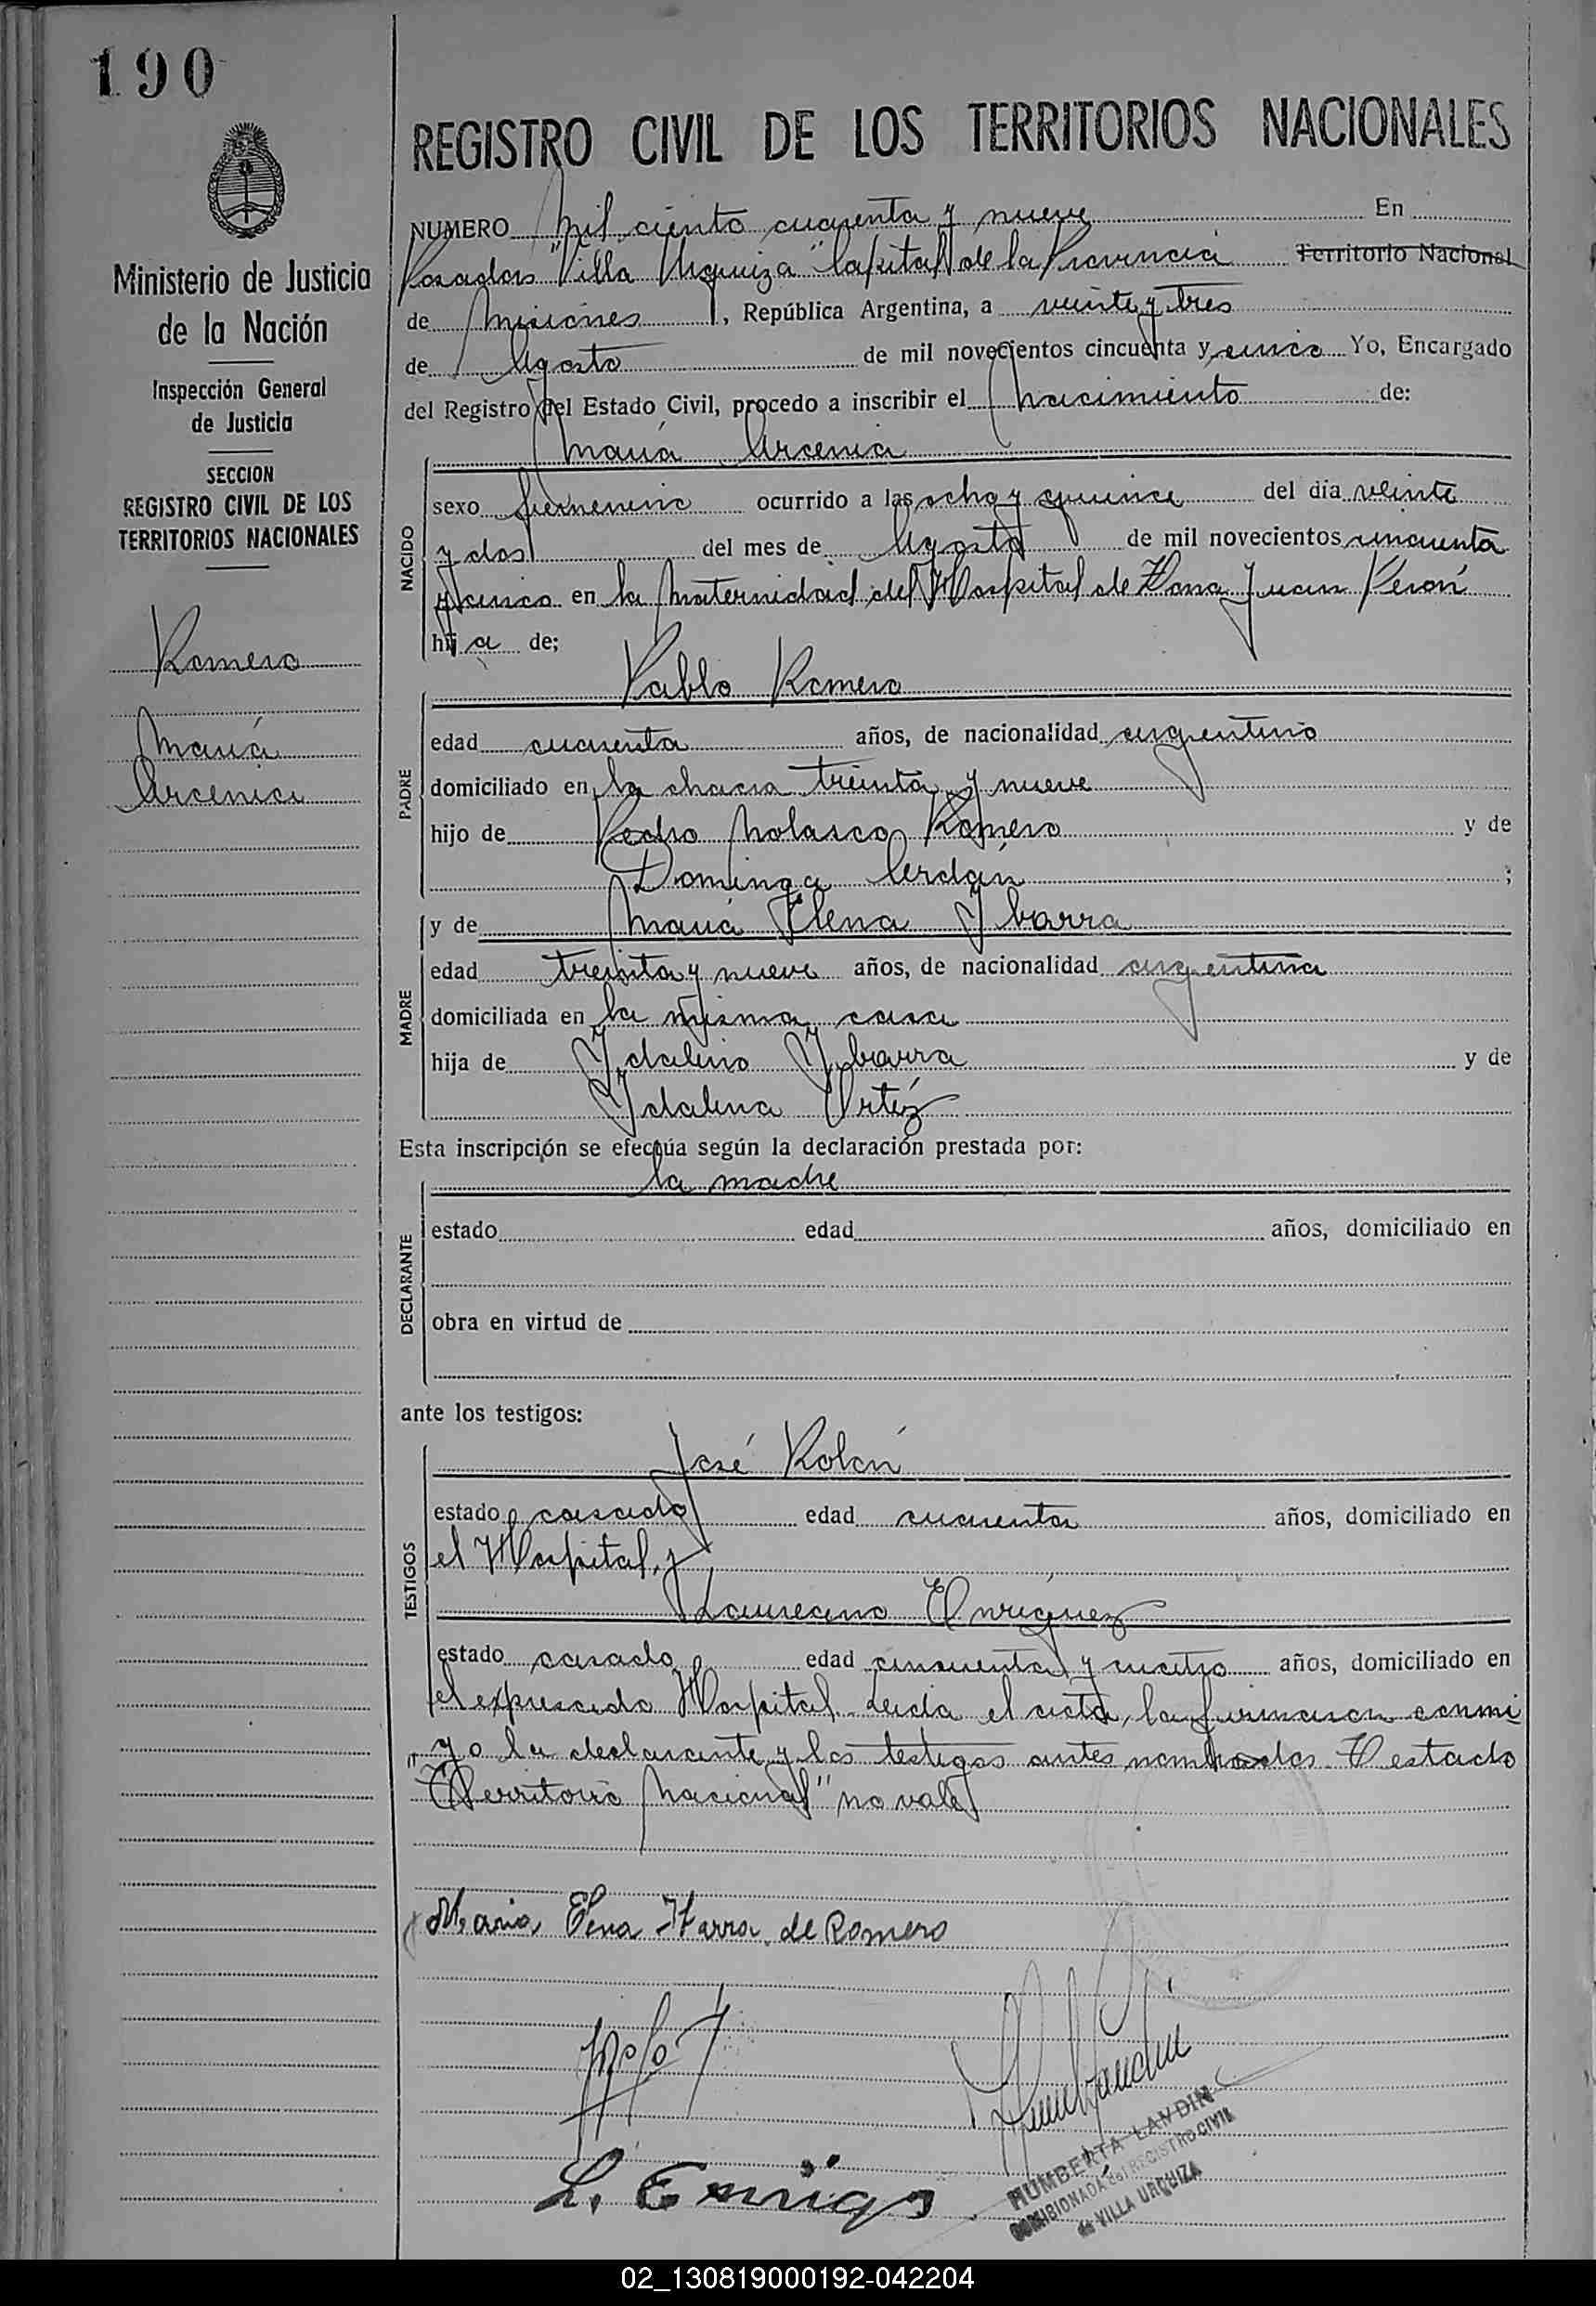 190
Ministerio de Justicia
de la Nación
Inspección General
de Justicia
SECCION
REGISTRO CIVIL DE LOS
TERRITORIOS NACIONALES
Romero
María
Arcenia
REGISTRO CIVIL DE LOS TERRITORIOS NACIONALES
NUMERO Mil ciento cuarenta y nueve En
Posadas "Villa Urquiza" Capital de la Provincia Territorio Nacional
de Misiones, República Argentina, a veinte y tres
de Agosto de mil novecientos cincuenta y cinco Yo, Encargado
del Registro del Estado Civil, procedo a inscribir el nacimiento de:
María Arcenia
NACIDO
sexo femenino ocurrido a las ocho y quince del día veinte
y dos del mes de Agosto de mil novecientos cincuenta
y cinco en la Maternidad del Hospital de Zona Juan Perón
hija de;
Pablo Romero
PADRE
edad cuarenta años, de nacionalidad argentino
domiciliado en la chacra treinta y nueve
hijo de Pedro Nolasco Romero y de
Dominga Cerdán ;
y de María Elena Ybarra
MADRE
edad treinta y nueve años, de nacionalidad argentina
domiciliada en la misma casa
hija de Ydalino Ybarra y de
Ydalina Ortíz
Esta inscripción se efectúa según la declaración prestada por:
la madre
DECLARANTE
estado edad años, domiciliado en
obra en virtud de
ante los testigos:
José Rolón
TESTIGOS
estado casado edad cuarenta años, domiciliado en
el Hospital, y
Laureano Enríquez
estado casado edad cincuenta y cuatro años, domiciliado en
el expresado Hospital. Leída el acta, la firmaron conmi
go la declarante y los testigos antes nombrados. Testado
"Territorio Nacional" no vale
Maria Elena Ybarra de Romero
L. Enriqs
HUMBERTA LANDIN
COMISIONADA del REGISTRO CIVIL
de VILLA URQUIZA
02_130819000192-042204